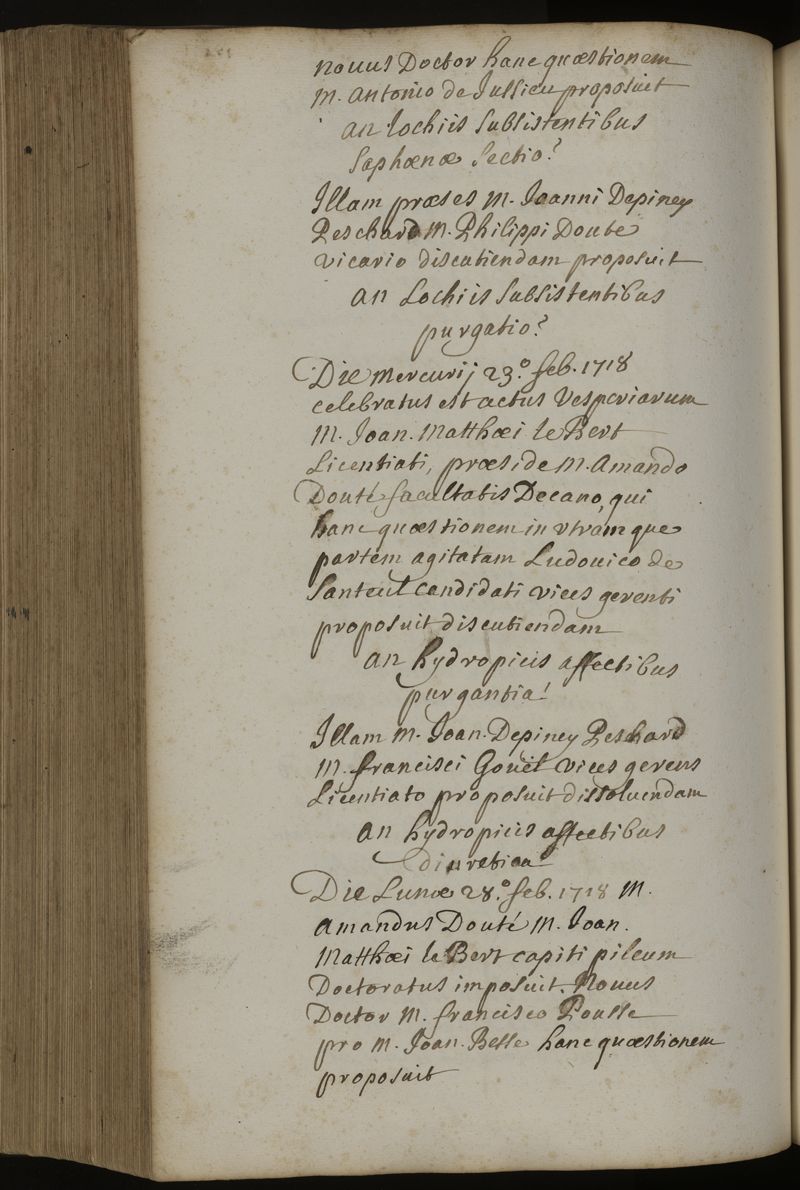 nouus Doctor hanc quæstionem
M. antonio de Jussieu proposuit
an lochiis subsistentibus
saphœnæ sectio?
Illam præses M. Joanni Depiney
Peschard M. Philippi Douté
vicario discutiendam proposuit
an Lochiis subsistentibus
purgatio?
Die mercurij 23.º feb. 1718
celebratus est actus Vesperiarum
M. Joan. Matthæi le Bert
Licentiati, præside M. Amando
Douté facultatis Decano, qui
hanc quæstionem in vtramque
partem agitatam Ludouico de
Santeul candidati vices gerenti
proposuit discutiendam
an hydropicis affectibus
purgantia?
Illam M. Joan. Depiney Peschard
M. francisci Gouël vices gerens
Licentiato proposuit dissoluendam
an hydropicis affectibus
diuretica
Die Lunæ 28.º feb. 1718 M.
amandus Douté M. Joan.
Matthæi le Bert capiti pileum
Doctoratus imposuit. Nouus
Doctor M. francisco Pousse
pro M. Joan. Belle hanc quæstionem
proposuit